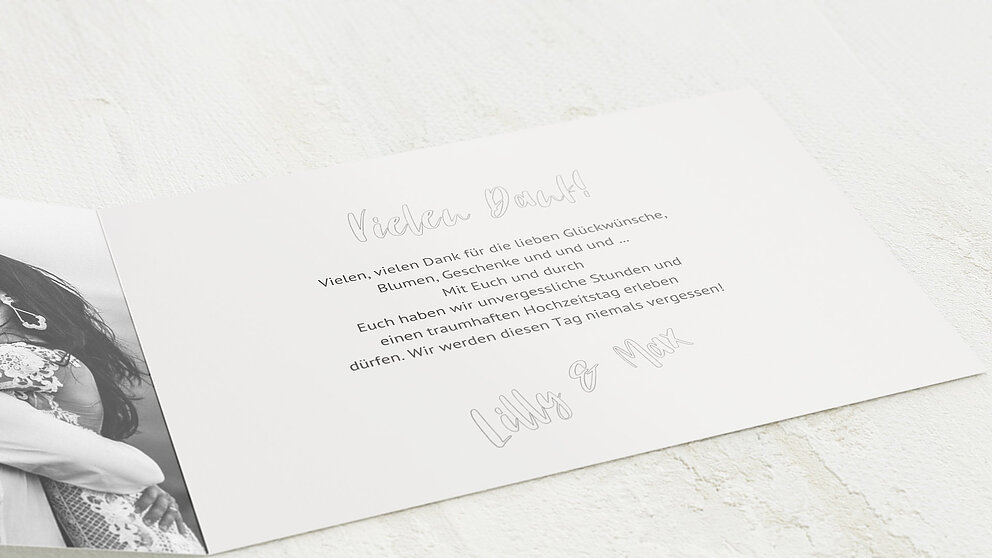 Vielen Dank!
Vielen, vielen Dank für die lieben Glückwünsche,
Blumen, Geschenke und und und ...
Mit Euch und durch
Euch haben wir unvergessliche Stunden und
einen traumhaften Hochzeitstag erleben
dürfen. Wir werden diesen Tag niemals vergessen!
Lilly & Max